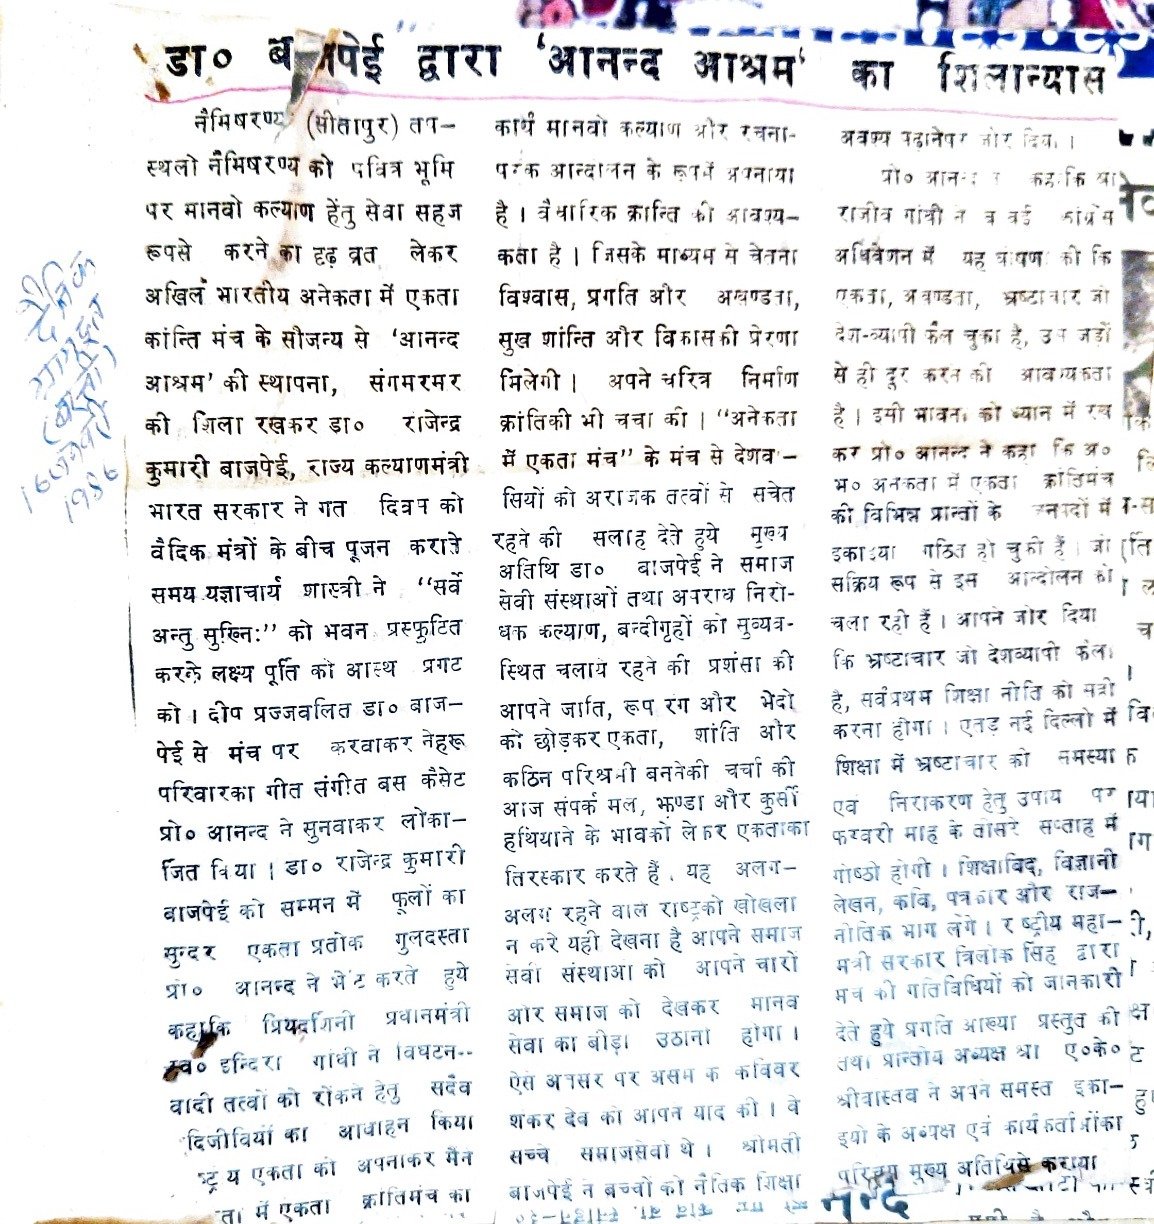 डा० बाजपेई द्वारा 'आनन्द आश्रम' का शिलान्यास
नैमिषरण्य (सीतापुर) तप-
स्थलो नैमिषरण्य को पवित्र भूमि
पर मानवो कल्याण हेंतु सेवा सहज
रूपसे करने का दृढ़ व्रत लेकर
अखिल भारतीय अनेकता में एकता
कांन्ति मंच के सौजन्य से 'आनन्द
आश्रम' की स्थापना, संगमरमर
की शिला रखकर डा० राजेन्द्र
कुमारी बाजपेई, राज्य कल्याणमंत्री
भारत सरकार ने गत दिवस को
वैदिक मंत्रों के बीच पूजन कराते
समय यज्ञाचार्य शास्त्री ने "सर्वे
अन्तु सुखिनः" को भवन प्रस्फुटित
करके लक्ष्य पूर्ति को आस्थ प्रगट
को । दीप प्रज्जवलित डा० बाज-
पेई से मंच पर करवाकर नेहरू
परिवारका गीत संगीत बस कैसेट
प्रो० आनन्द ने सुनवाकर लोका-
जित किया । डा० राजेन्द्र कुमारी
बाजपेई को सम्मन में फूलों का
सुन्दर एकता प्रतोक गुलदस्ता
प्रो० आनन्द ने भेंट करते हुये
कहाकि प्रियदर्शिनी प्रधानमंत्री
स्व० इन्दिरा गांधी ने विघटन-
वादी तत्वों को रोंकने हेतु सदैव
दिजीवियों का आवाहन किया
एकता को अपनाकर मैन
में एकता क्रांतिमंच का
कार्य मानवो कल्याण और रचना-
परक आन्दालन के रूपमें अपनाया
है । वैचारिक क्रान्ति की आवश्य-
कता है । जिसके माध्यम से चेतना
विश्वास, प्रगति और अखण्डता,
सुख शांन्ति और विकासकी प्रेरणा
मिलेगी । अपने चरित्र निर्माण
क्रांतिकी भी चचा की । "अनेकता
में एकता मंच" के मंच से देशव-
सियों को अराजक तत्वों से सचेत
रहने की सलाह देते हुये मुख्य
अतिथि डा० बाजपेई ने समाज
सेवी संस्थाओं तथा अपराध निरो-
धक कल्याण, बन्दीगृहों को सुव्यव-
स्थित चलाये रहने की प्रशंसा की
आपने जाति, रूप रंग और भेदो
को छोड़कर एकता, शांति और
कठिन परिश्रमी बननेकी चर्चा की
आज संपर्क मल, झण्डा और कुर्सी
हथियाने के भावको लेकर एकताका
तिरस्कार करते हैं . यह अलग-
अलग रहने वाल राष्ट्रको खोखला
न करे यही देखना है आपने समाज
सेवी संस्थाआ को आपने चारो
ओर समाज को देखकर मानव
सेवा का बीड़ा उठाना होगा ।
ऐसे अवसर पर असम के कविवर
शंकर देव को आपने याद की । वे
सच्चे समाजसेवी थे । श्रीमती
बाजपेई न बच्चों को नैतिक शिक्षा
अवश्य पढ़ानेपर जोर दिया ।
प्रो० आनन्द कहाकि
राजीव गांधी ने बम्बई कांग्रेस
अधिवेशन में यह घोषणा की कि
एकता, अखण्डता, भ्रष्टाचार जो
देश-व्यापी फैल चुका है, उसे जड़ों
से ही दूर करने की आवश्यकता
है । इसी भावना को ध्यान में रख
कर प्रो० आनन्द ने कहा कि अ०
भ० अनेकता में एकता क्रांतिमंच
की विभिन्न प्रान्तों के जनपदों में
इकाइया गठित हो चुकी हैं । जो
सक्रिय रूप से इस आन्दोलन को
चला रही हैं । आपने जोर दिया
कि भ्रष्टाचार जो देशव्यापी फैला
है, सर्वप्रथम शिक्षा नीति को
करना होगा । एतद नई दिल्लो में
शिक्षा में भ्रष्टाचार की समस्या
एवं निराकरण हेतु उपाय पर
फरवरी माह के तीसरे सप्ताह में
गोष्ठी होगी । शिक्षाविद, विज्ञानी
लेखन, कवि, पत्रकार और राज-
नीतिक भाग लेंगे । राष्ट्रीय महा-
मंत्री सरकार त्रिलोक सिंह द्वारा
मंच की गतिविधियों की जानकारी
देते हुये प्रगति आख्या प्रस्तुत की
तथा प्रान्तीय अध्यक्ष श्री ए०के०
श्रीवास्तव ने अपने समस्त इका-
इयो के अध्यक्ष एवं कार्यकर्ताओंका
परिचय मुख्य अतिथिसे कराया
दैनिक
(बस्ती)
16 जनवरी
1986